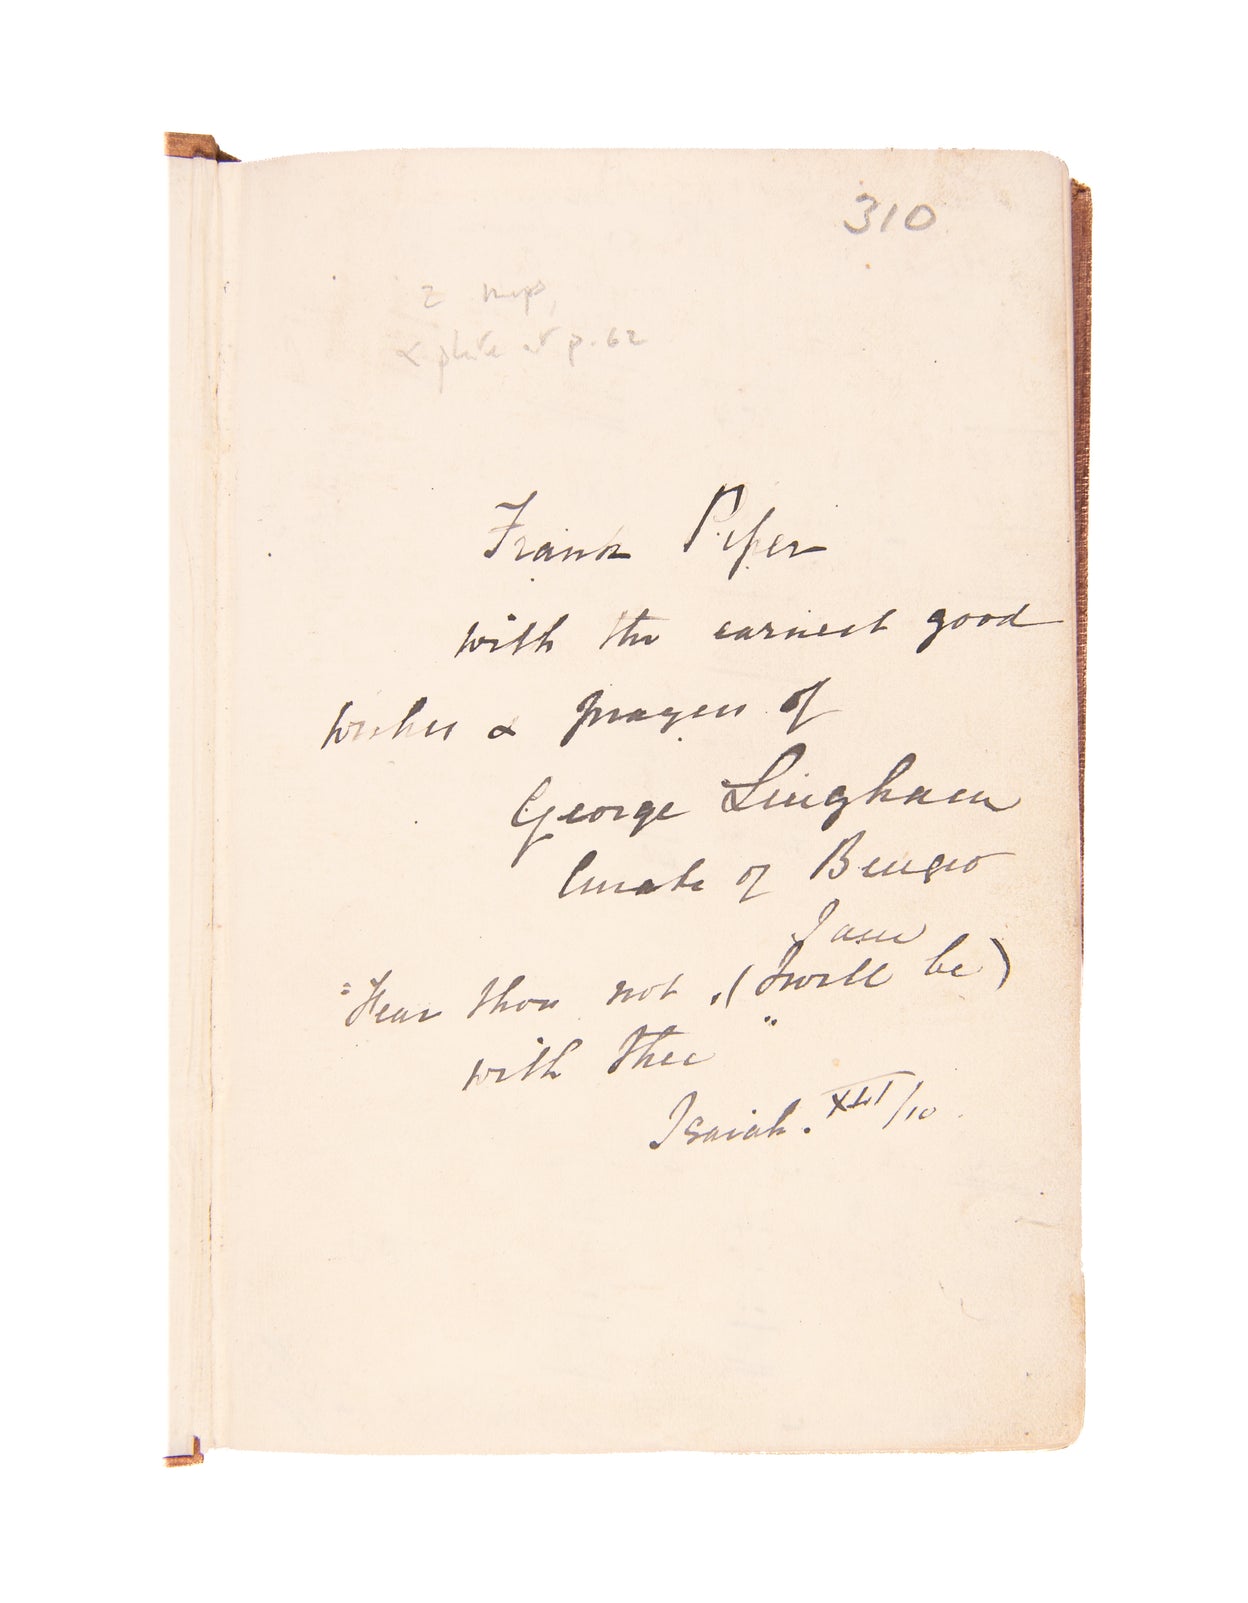 310
2 maps,
& plate at p. 62
Frank Piper
with the earnest good
wishes & prayers of
George Lingham
Curate of Bengeo
I am
"Fear thou not, (I will be)
with thee"
Isaiah. XLI/10.